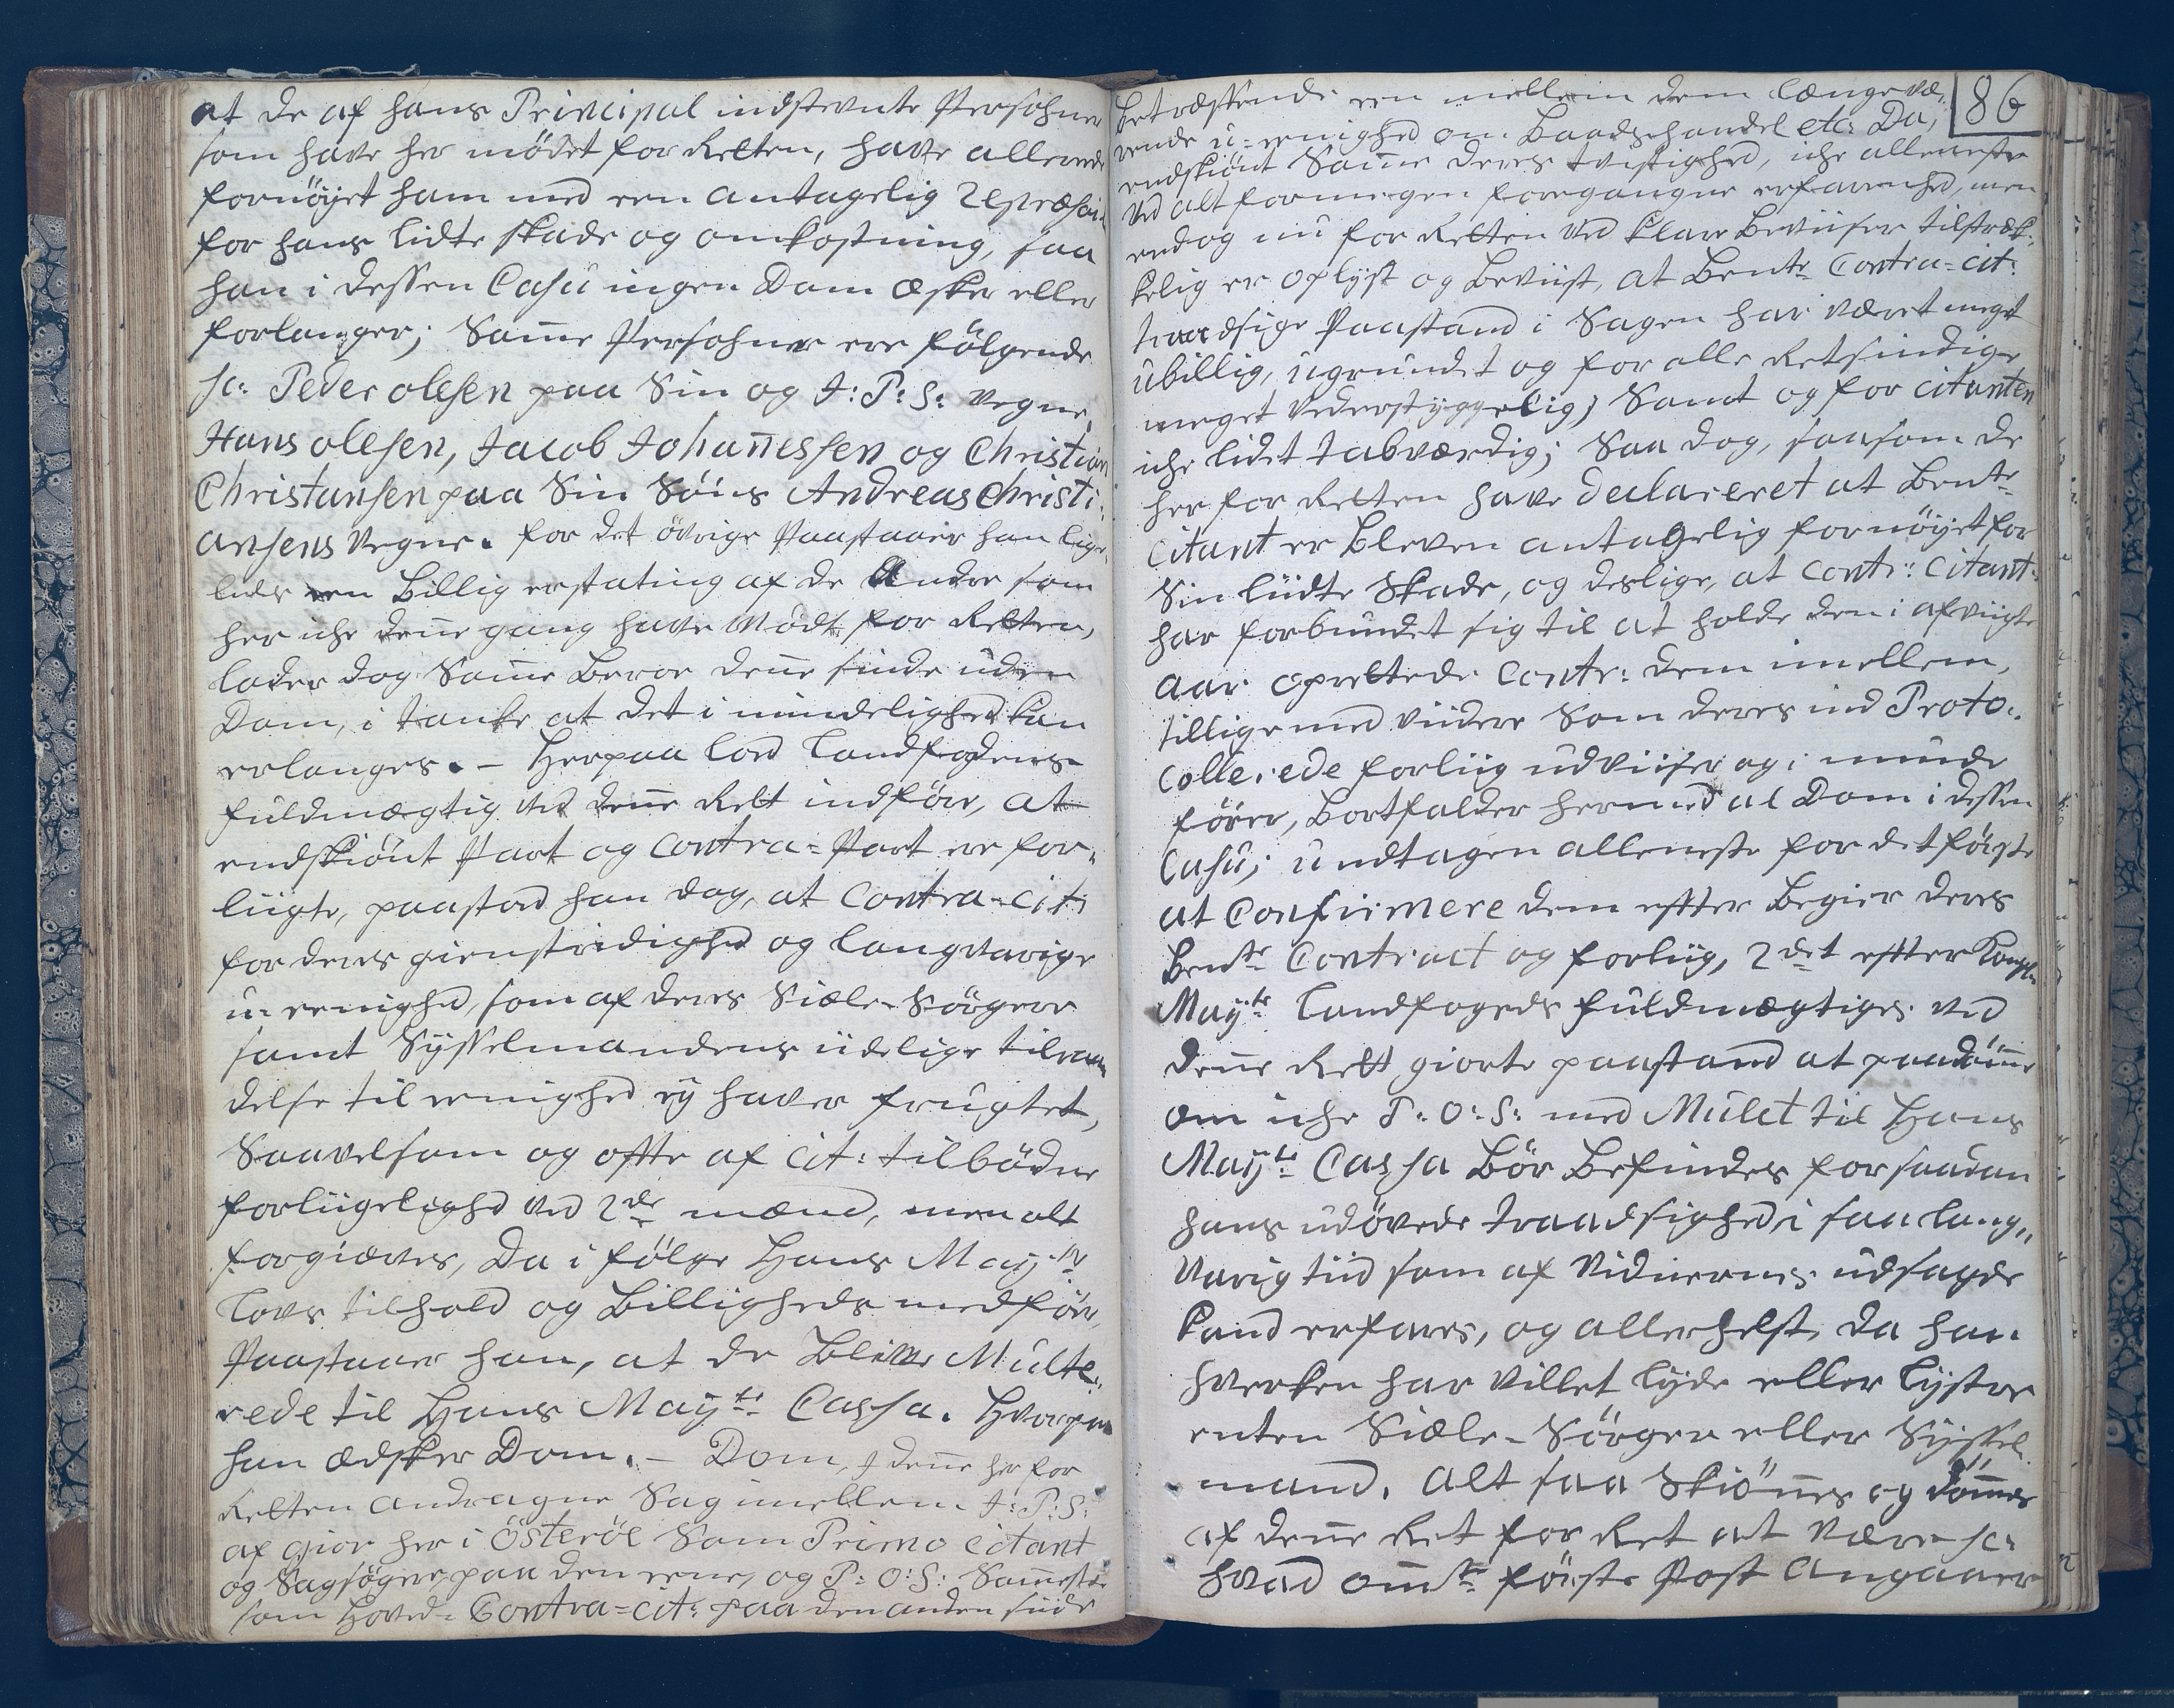 at de af hans Principal indstevnte Persohner
som have her mödet for Retten, have allerede
fornöyet ham med een antagelig
for hans lidte skade og omkostning, saa
han i dessen Casu ingen Dom æsker eller
forlanger; Sam̅e Persohner ere fölgende
sc: Peder olesen paa Sin og J: P: S: vegne,
Hans olesen, Jacob Johan̅essen og Christian
Christansen paa Sin Söns Andreas Christi:
ansens vegne. for det övrige Paastaaer han lige,
leds een Billig erstating af de Andre som
her iche den̅e gang have Mödt for Retten,
lader dog Sam̅e Beroe den̅e sinde uden
Dom, i tanke at det i mindelighed kan
erlanges. – Herpaa lod Landfogdens
fuldmægtig ved den̅e Rett indföre, at
endskiönt Part og Contra-Part ere for,,
liigte, paastod han dog, at Contra-Cit:
for deres gienstridighed og langvarige
u-eenighed, som af deres Siæle-Sörgere
samt Sysselmandens idelige tilraa
delse til eenighed ey haver frugtet,
Saavelsom og offte af Cit: tilbödne
forliigelighed ved 2de mænd, men alt
forgiæves, Da i fölge Hans Mayts
Lovs tilhold og Billigheds medför,
Paastaaer han, at de Blive Multe:
rede til Hans Mayts Cassa. Hvorpaa
han ædsker Dom. – Dom, I den̅e her for
Retten andragne Sag imellem J: P: S:
af gior her i Österöe Som Primo Citant
og Sagsögere, paa den eene, og P: O: S: Sam̅estæ
som Hoved-Contra-Cit: paa den anden side
86
Betræffende een mellem dem længevæ,,
rende u-eenighed om Baadshandel etc: Da,
endskiönt Sam̅e deres tvistighed, iche alleneste
ved alt formegen foregangne erfarenhed, men
endog nu for Retten ved klare Beviiser tilstræk:
kelig er oplyst og Beviist, at Bente Contra-Cit:
traadsige Paastand i Sagen har været meget
ubillig, ugrundet og for alle Retsindige
meget vederstyggelig; Samt og for Citanten
iche lidet tabværdig; Saa dog, saasom de
her for Retten have Declareret at Bente
Citant er Bleven antagelig fornöyet for
Sin liidte Skade, og deslige, at Contr: Citant:
har forbundet sig til at holde den i afviigte
aar oprettede Contr: dem imellem,
tillige med viidere Som deres ind Proto:
collerede forliig udviiser og i munde
förer, Bortfalder hermed al Dom i dessen
Casu; undtagen alleneste for det förste
at Confirmere dem effter Begier deres
Bente Contract og forliig, 2det effter Kongl:
Mayts Landfogeds fuldmægtiges ved
den̅e Rett giorte paastand at paadöm̅e
om iche P: O: S: med Mulct til Hans
Mayts Cassa Bör Befindes for saadan
hans udövede traadsighed, i saa lang,,
varig tiid som af Vidnernes udsagde
kand erfares, og allerhelst, da han
hverken har villet lyde eller lystre
enten Siæle-Sörger eller Syssel
mand. Alt saa Skiön̅es og döm̅es
af den̅e Ret for Ret at være sc:
hvad om̅te förste Post Angaaer